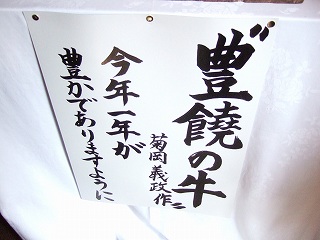 〝豊饒の牛〟
菊岡義政作
今年一年が
豊かでありますように